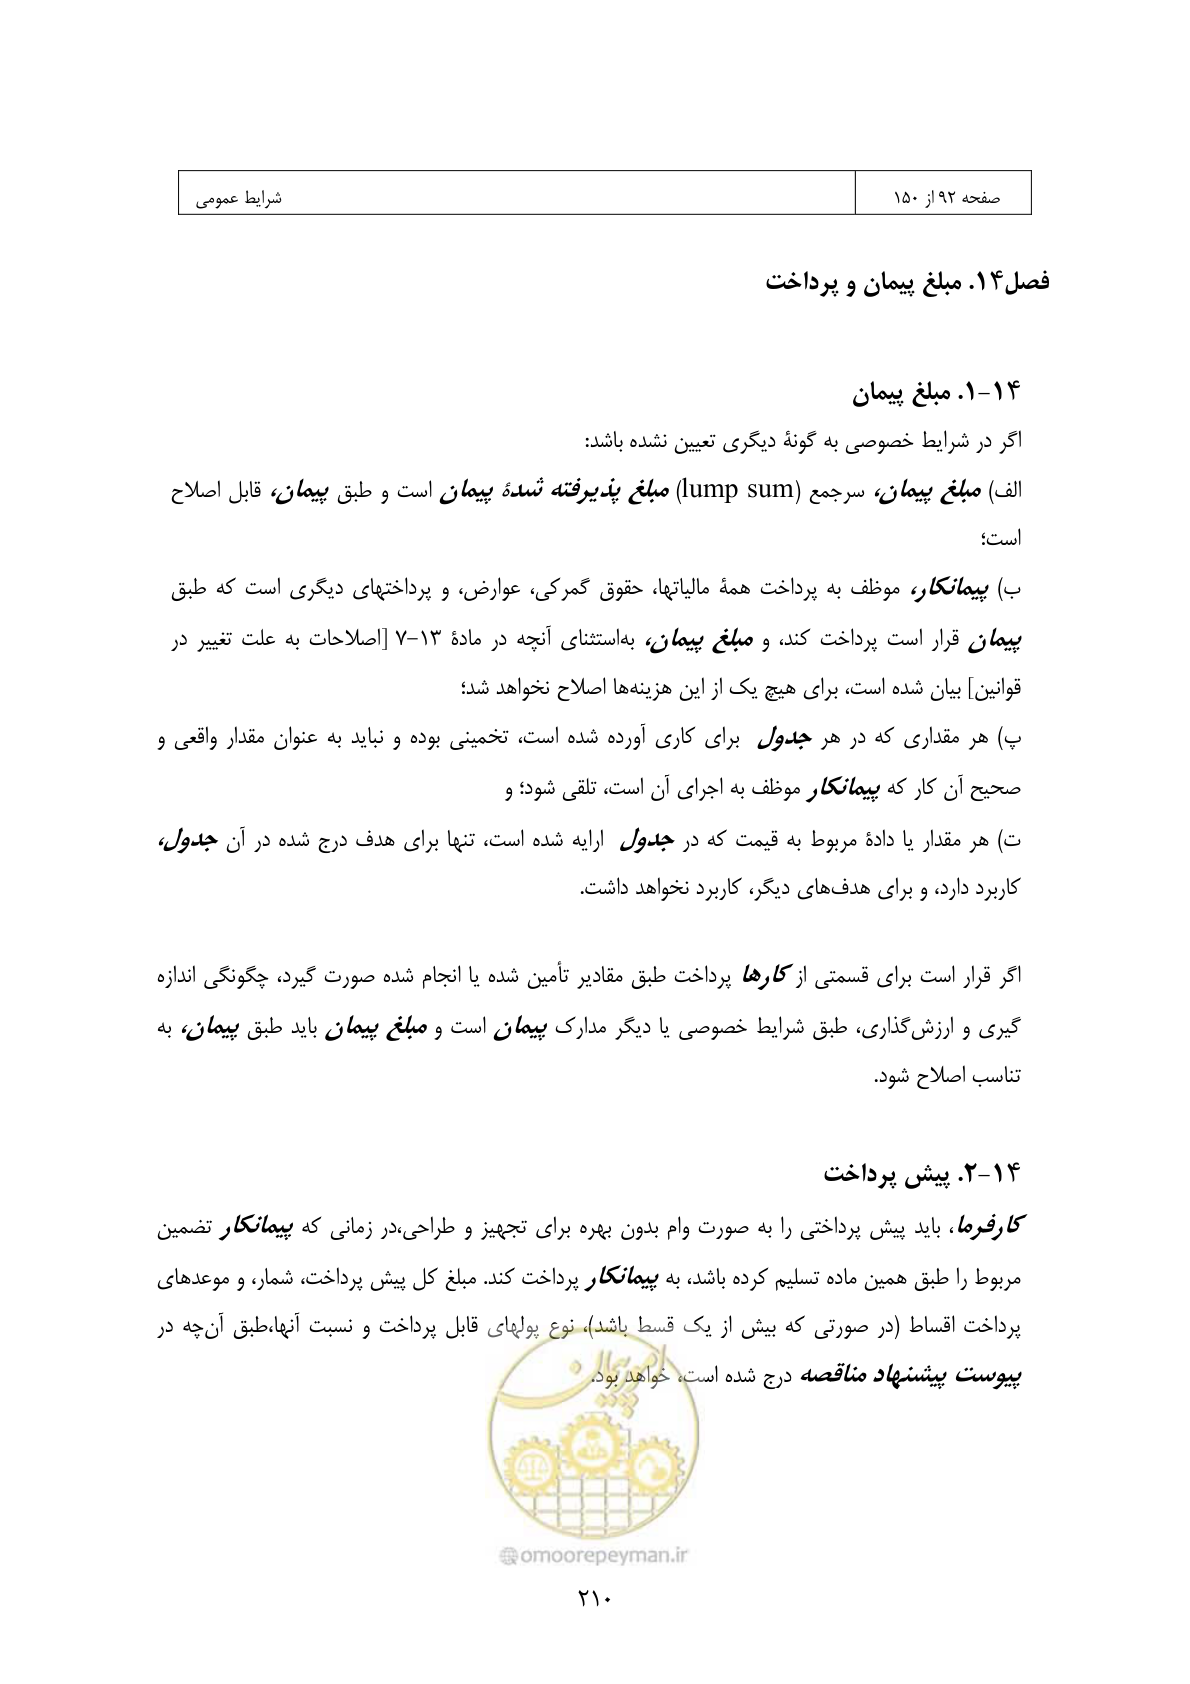 صفحه ۹۲ از ۱۵۰
شرایط عمومی
فصل۱۴. مبلغ پیمان و پرداخت
۱۴-۱. مبلغ پیمان
اگر در شرایط خصوصی به گونهٔ دیگری تعیین نشده باشد:
الف) مبلغ پیمان، سرجمع (lump sum) مبلغ پذیرفته شدهٔ پیمان است و طبق پیمان، قابل اصلاح
است؛
ب) پیمانکار، موظف به پرداخت همهٔ مالیاتها، حقوق گمرکی، عوارض، و پرداختهای دیگری است که طبق
پیمان قرار است پرداخت کند، و مبلغ پیمان، به‌استثنای آنچه در مادهٔ ۱۳-۷ [اصلاحات به علت تغییر در
قوانین] بیان شده است، برای هیچ یک از این هزینه‌ها اصلاح نخواهد شد؛
پ) هر مقداری که در هر جدول برای کاری آورده شده است، تخمینی بوده و نباید به عنوان مقدار واقعی و
صحیح آن کار که پیمانکار موظف به اجرای آن است، تلقی شود؛ و
ت) هر مقدار یا دادهٔ مربوط به قیمت که در جدول ارایه شده است، تنها برای هدف درج شده در آن جدول،
کاربرد دارد، و برای هدف‌های دیگر، کاربرد نخواهد داشت.
اگر قرار است برای قسمتی از کارها پرداخت طبق مقادیر تأمین شده یا انجام شده صورت گیرد، چگونگی اندازه
گیری و ارزش‌گذاری، طبق شرایط خصوصی یا دیگر مدارک پیمان است و مبلغ پیمان باید طبق پیمان، به
تناسب اصلاح شود.
۱۴-۲. پیش پرداخت
کارفرما، باید پیش پرداختی را به صورت وام بدون بهره برای تجهیز و طراحی،در زمانی که پیمانکار تضمین
مربوط را طبق همین ماده تسلیم کرده باشد، به پیمانکار پرداخت کند. مبلغ کل پیش پرداخت، شمار، و موعدهای
پرداخت اقساط (در صورتی که بیش از یک قسط باشد)، نوع پولهای قابل پرداخت و نسبت آنها،طبق آن‌چه در
پیوست پیشنهاد مناقصه درج شده است، خواهد بود.
امور پیمان
@omoorepeyman.ir
۲۱۰